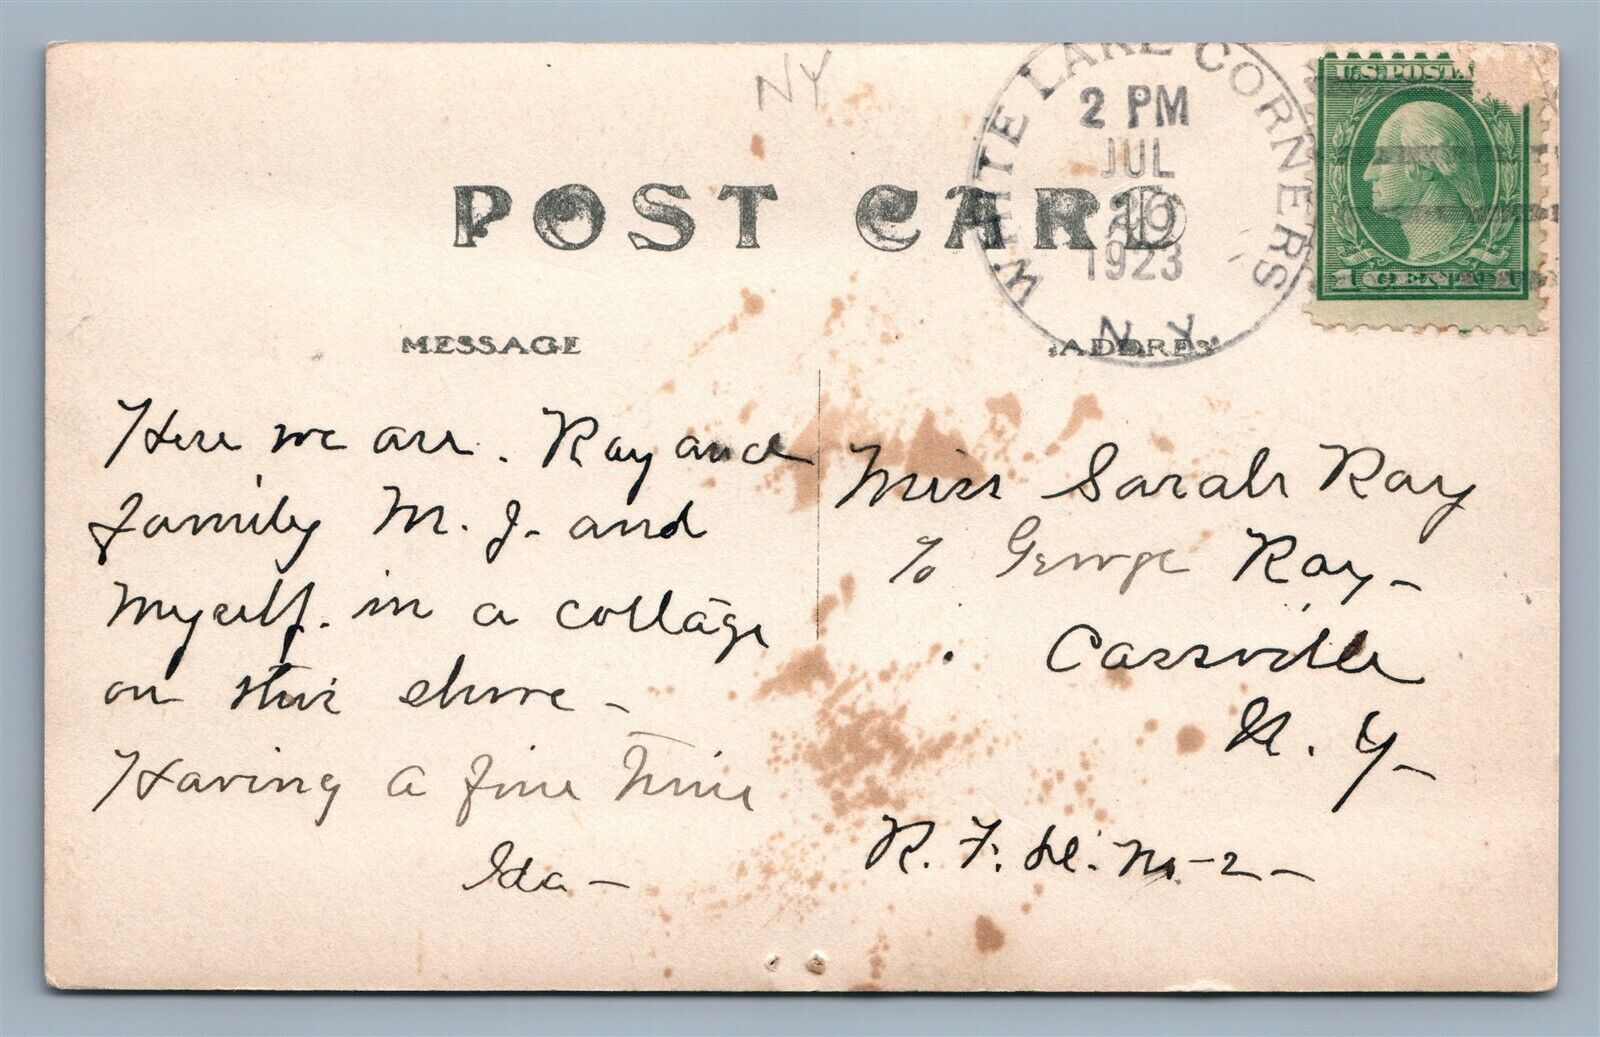 NY
WHITE LAKE CORNERS
2 PM
JUL
26
1923
N.Y.
U.S. POSTA
1 CENT 1
POST CARD
MESSAGE
ADDRES
Here we are. Ray and
family M. J. and
Myself. in a cottage
on this shore -
Having a fine time
Ida -
Miss Sarah Ray
% George Ray -
Cassville
N. Y -
R. F. D. No - 2 -